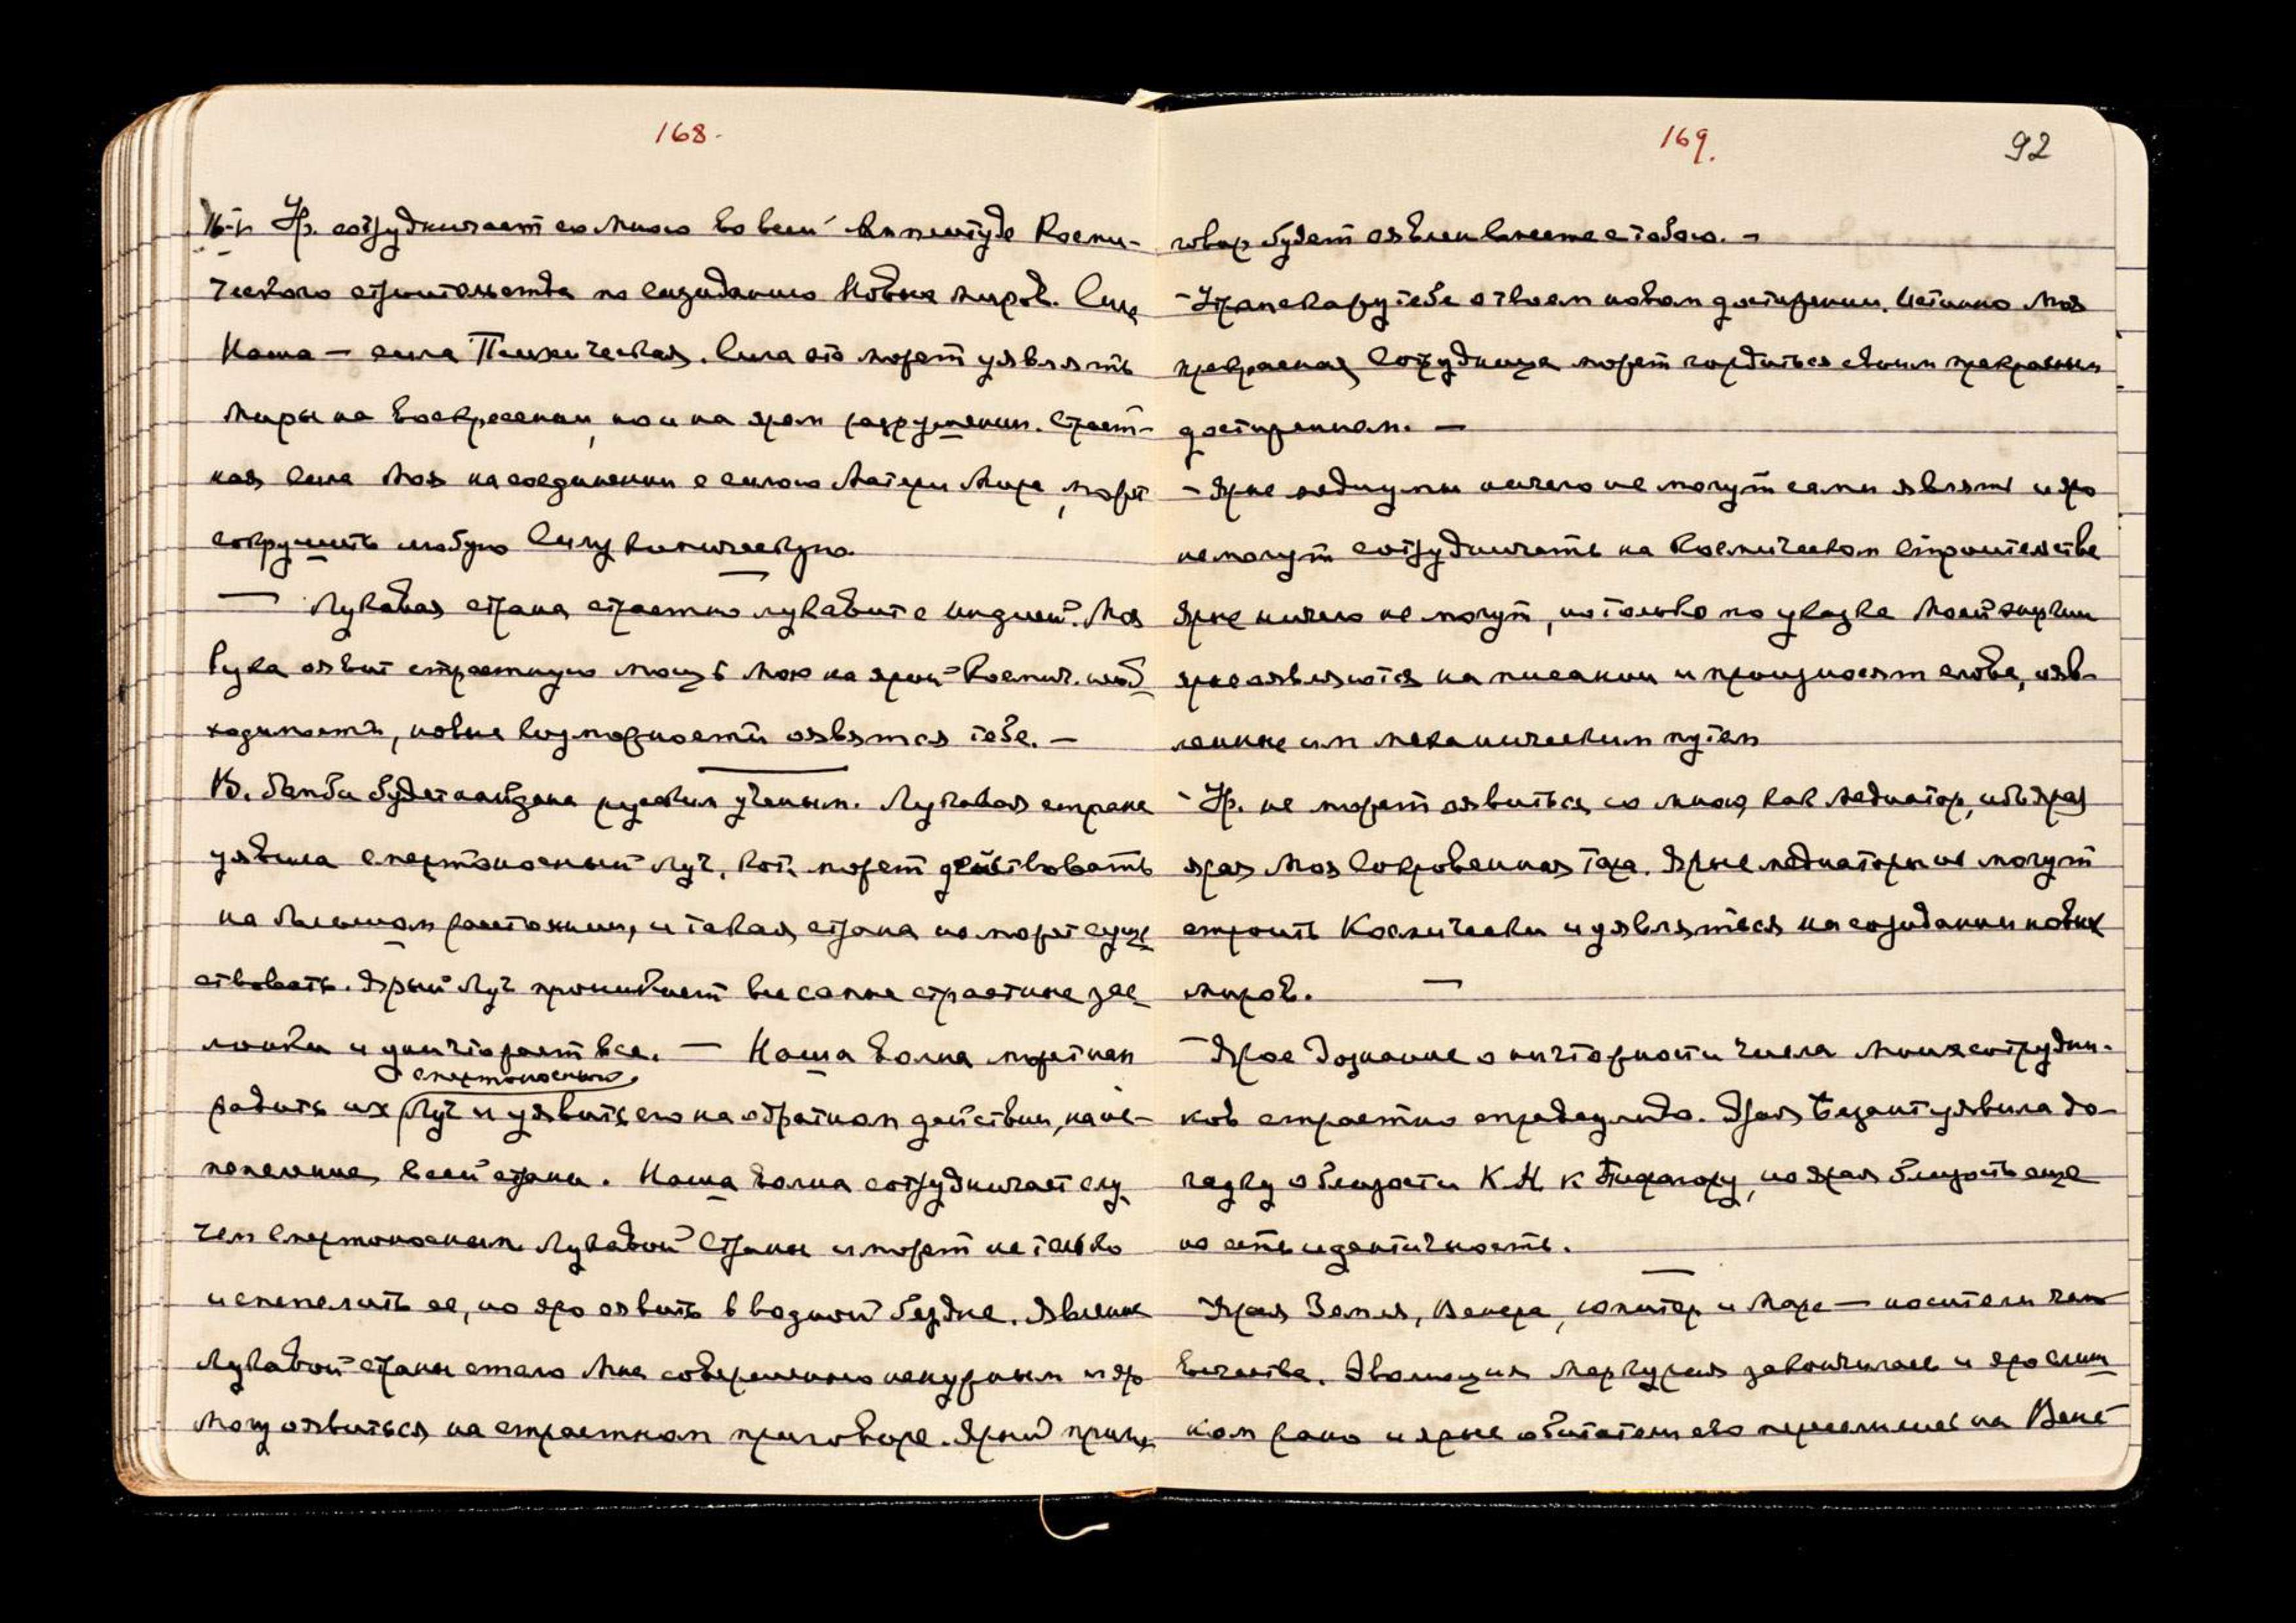 168.
16-го Ур. сотрудничает со Мною во всей амплитуде Косми-
ческого строительства по созиданию Новых миров. Сила
Наша — сила Психическая. Сила эта может уявлять
миры на Воскресении, но и на яром разрушении. Страст-
ная Сила Моя на соединении с силою Матери Мира, может
сокрушить любую Силу Космическую.
— Лукавая страна страстно лукавит с Индией. Моя
Рука оявит страстную мощь Мою на ярой Космич. необ
ходимости, новые возможности оявятся тебе. —
В. бомба будет найдена русским ученым. Лукавая страна
уявила смертоносный луч, кот. может действовать
на большом расстоянии, и такая страна не может суще
ствовать. Ярый Луч пронизывает все самые страстные зас
лонки и уничтожает все. — Наша волна может ней
смертоносный
радить их Луч и уявить его на обратном действии, на ис-
пепеление всей страны. Наша волна сотрудничает с лу
чем смертоносным Лукавой Страны и может не только
испепелить ее, но яро оявить в водной бездне. Явление
Лукавой страны стало Мне совершенно ненужным и яро
могу оявиться на страстном приговоре. Ярый приго
169.
92
говор будет оявлен вместе с тобою. —
- Ур. скажу тебе о твоем новом достижении. Истинно Моя
прекрасная Сотрудница может гордиться своим прекрасным
достижением. —
- Ярые медиумы ничего не могут сами являть и яро
не могут сотрудничать на Космическом строительстве
Ярые ничего не могут, но только по указке
ярые оявляются на писании и произносят слова, ояв-
ленные им механическим путем
- Ур. не может оявиться со мною, как медиатор, ибо Ура
ярая Моя Сокровенная Тара. Ярые медиаторы не могут
строить Космически и уявляться на созидании новых
миров. —
- Ярое Дознание о ничтожности числа Моих сотрудни-
ков страстно справедливо. Ярая Безант уявила до-
гадку о близости К.Н. к Пифагору, но ярая близость еще
не есть идентичность.
Ярая Земля, Венера, Юпитер и Марс — носители чело
вечества. Эволюция Меркурия закончилась и яро слиш
ком рано и ярые обитатели его переселились на Вене-